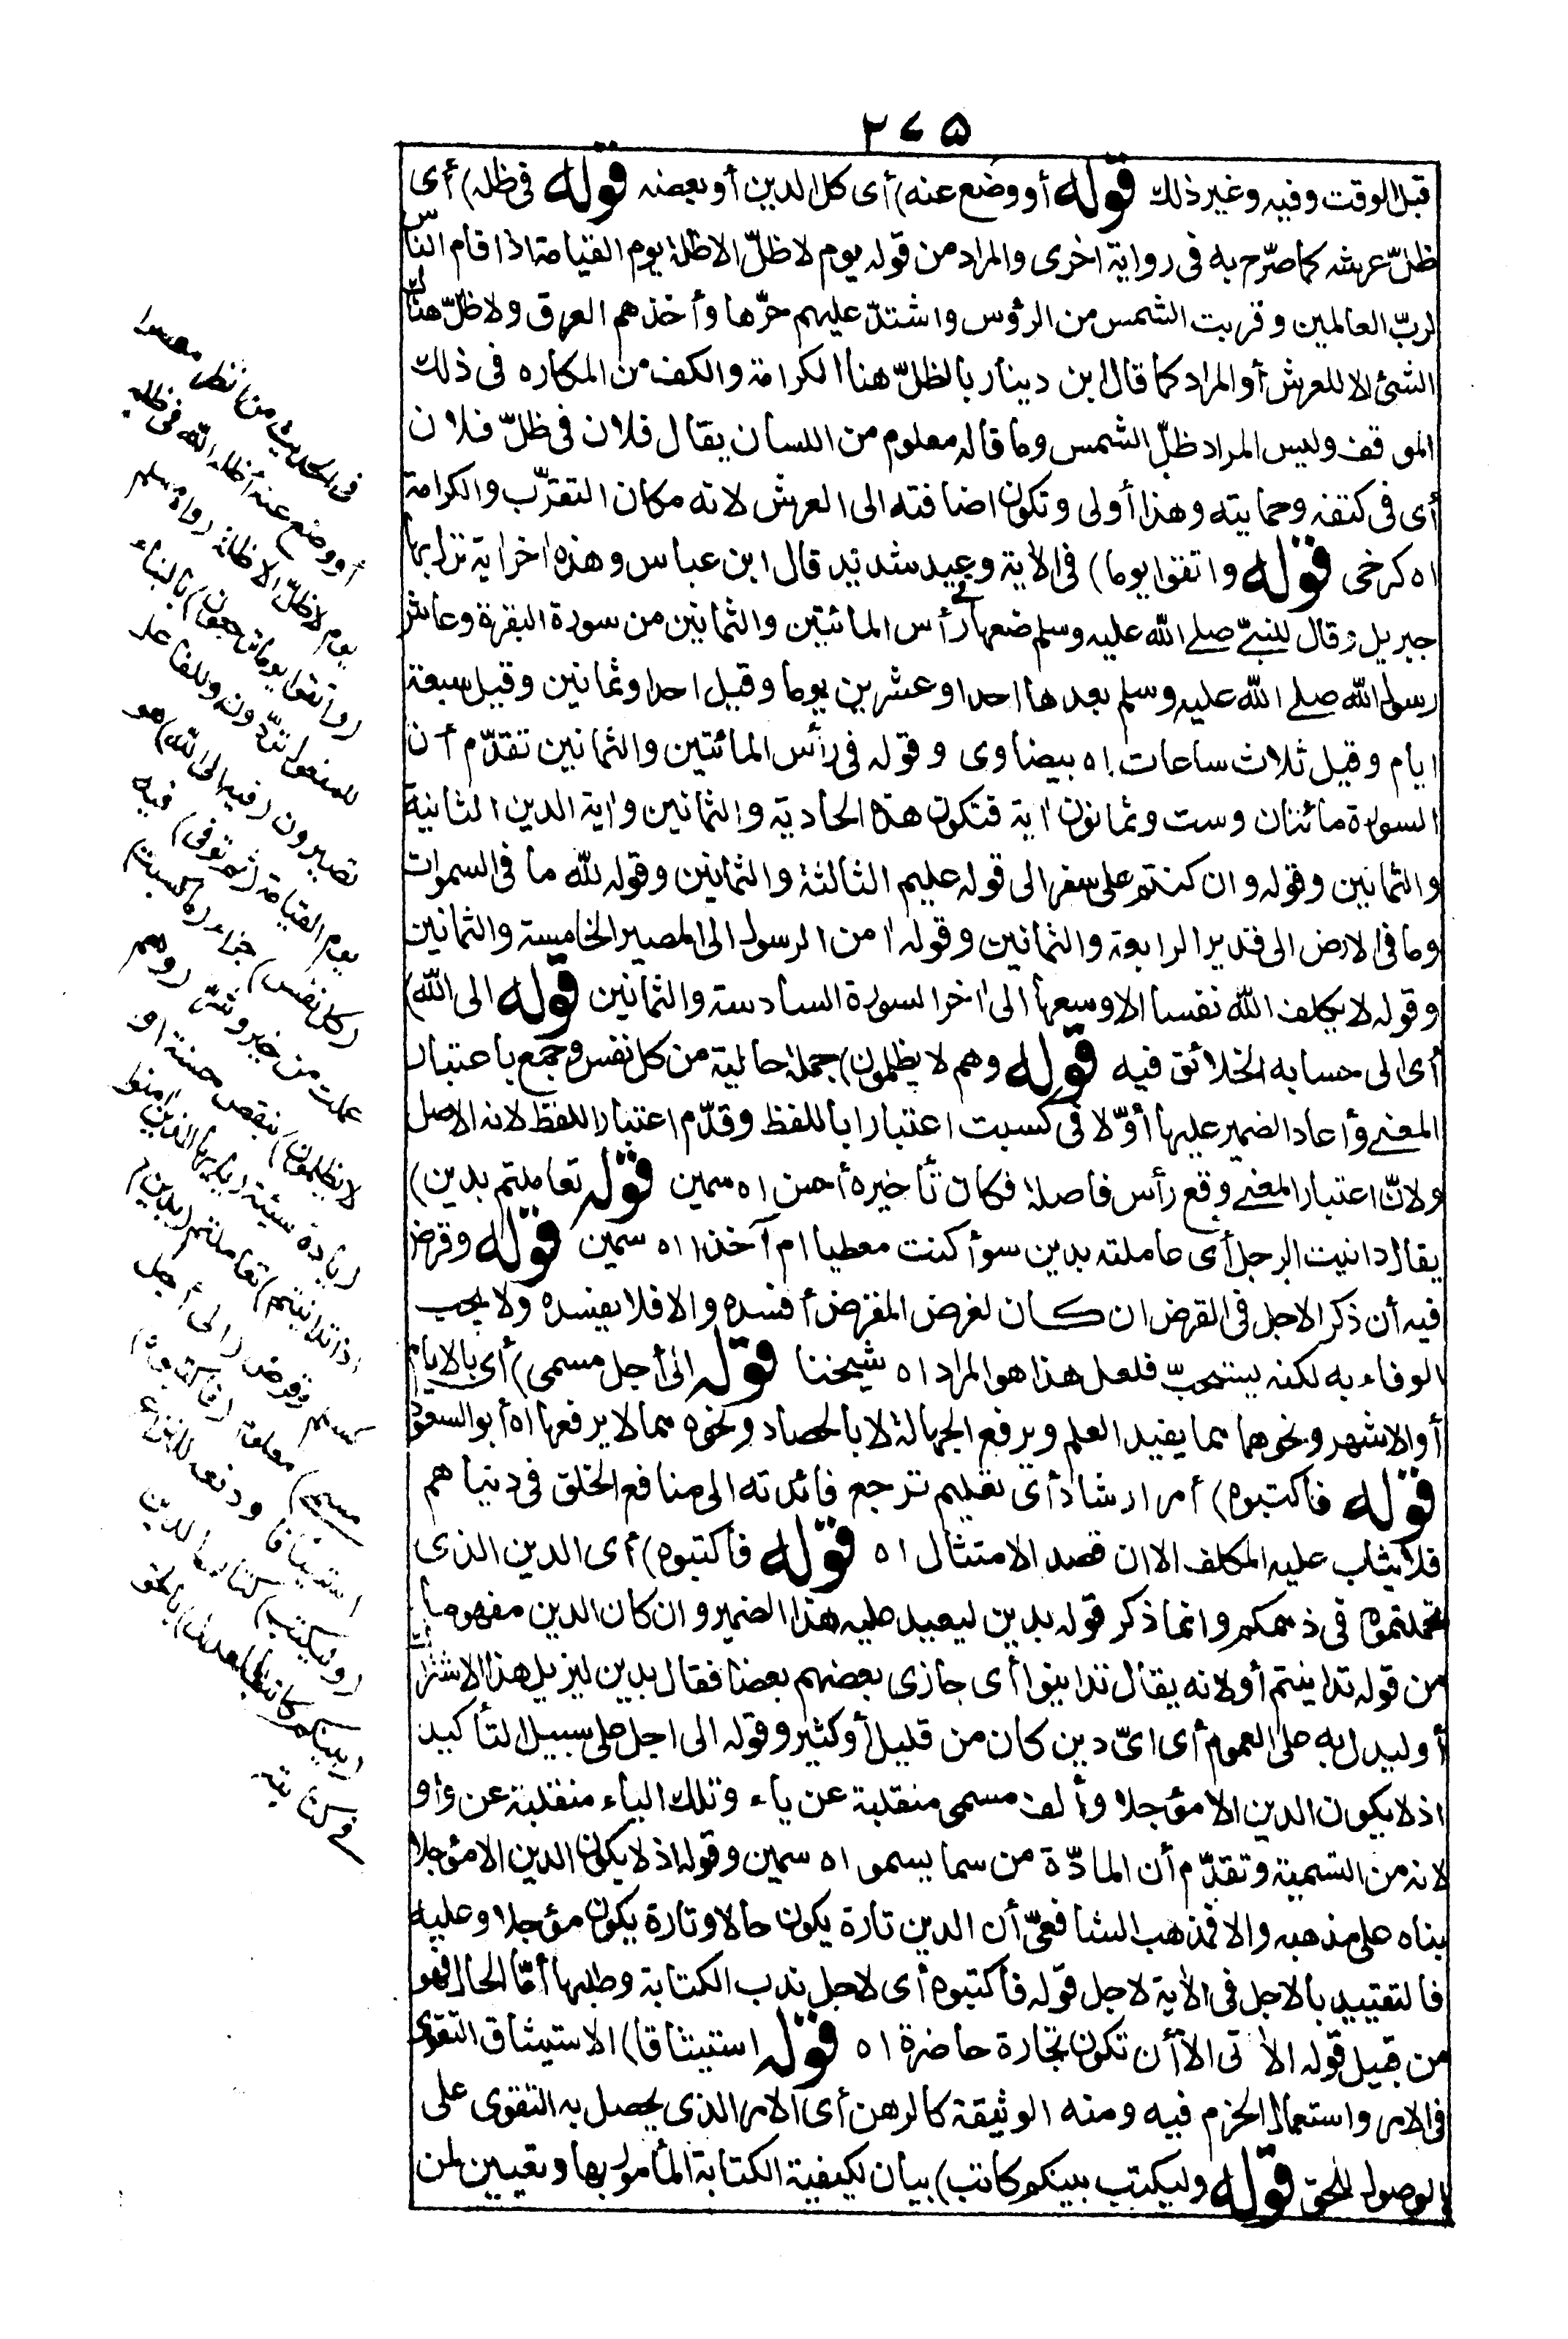 ٢٧٥
قبل الوقت وفيه وغير ذلك قوله أو وضع عنه) أى كل الدين أو بعضه قوله فى ظله) أى
ظلّ عرشه كما صرّح به فى رواية اخرى والمراد من قوله يوم لا ظلّ الا ظلّه يوم القيامة اذا قام الناس
لربّ العالمين وقربت الشمس من الرؤس واشتدّ عليهم حرّها وأخذهم العرق ولا ظلّ هناك
الشئ الا للعرش أو المراد كما قال ابن دينار بالظلّ هنا الكرامة والكف من المكاره فى ذلك
الموقف وليس المراد ظلّ الشمس وما قاله معلوم من اللسان يقال فلان فى ظلّ فلان
أى فى كنفه وحمايته وهذا أولى وتكون اضافته الى العرش لانه مكان التقرّب والكرامة
اه كرخى قوله واتقوا يوما) فى الاية وعيد شديد قال ابن عباس وهذه اخر اية نزل بها
جبريل وقال للنبىّ صلى الله عليه وسلم ضعها فى رأس المائتين والثمانين من سورة البقرة وعاش
رسول الله صلى الله عليه وسلم بعدها احدا وعشرين يوما وقيل احدا وثمانين وقيل سبعة
ايام وقيل ثلاث ساعات اه بيضاوى وقوله فى رأس المائتين والثمانين تقدّم أن
السورة مائتان وست وثمانون اية فتكون هذه الحادية والثمانين واية الدين الثانية
والثمانين وقوله وان كنتم على سفر الى قوله عليم الثالثة والثمانين وقوله لله ما فى السموات
وما فى الارض الى قدير الرابعة والثمانين وقوله امن الرسول الى المصير الخامسة والثمانين
وقوله لا يكلف الله نفسا الا وسعها الى اخر السورة السادسة والثمانين قوله الى الله)
أى الى حسابه الخلائق فيه قوله وهم لا يظلمون) جملة حالية من كل نفس وجمع باعتبار
المعنى وأعاد الضمير عليها أوّلا فى كسبت اعتبارا باللفظ وقدّم اعتبار اللفظ لانه الاصل
ولانّ اعتبار المعنى وقع رأس فاصلة فكان تأخيره أحسن اه سمين قوله تعاملتم بدين)
يقال داينت الرجل أى عاملته بدين سوأ كنت معطيا ام آخذا اه سمين قوله وقرض
فيه أن ذكر الاجل فى القرض ان كان لغرض المقرض أفسده والا فلا يفسده ولا يجب
الوفاء به لكنه يستحبّ فلعل هذا هو المراد اه شيخنا قوله الى أجل مسمى) أى بالايام
أو الاشهر ونحوهما مما يفيد العلم ويرفع الجهالة لا بالحصاد ونحوه مما لا يرفعها اه أبو السعود
قوله فاكتبوه) أمر ارشاد أى تعليم ترجع فائدته الى منافع الخلق فى دنياهم
فلا يثاب عليه المكلف الا ان قصد الامتثال اه قوله فاكتبوه) أى الدين الذى
تحملتموه فى ذممكم وانما ذكر قوله بدين ليعيد عليه هذا الضمير وان كان الدين مفهوما
من قوله تداينتم أو لانه يقال تداينوا أى جازى بعضهم بعضا فقال بدين ليزيل هذا الاشتراك
أو ليدل به على العموم أى اىّ دين كان من قليل أو كثير وقوله الى اجل على سبيل التأكيد
اذ لا يكون الدين الا مؤجلا وألف مسمى منقلبة عن ياء وتلك الياء منقلبة عن واو
لانه من التسمية وتقدّم أن المادّة من سما يسمو اه سمين وقوله اذ لا يكون الدين الا مؤجلا
بناه على مذهبه والا فمذهب الشافعىّ أن الدين تارة يكون حالا وتارة يكون مؤجلا وعليه
فالتقييد بالاجل فى الاٰية لاجل قوله فاكتبوه أى لاجل ندب الكتابة وطلبها أمّا الحال فهو
من قبيل قوله الاٰتى الاّ أن تكون تجارة حاضرة اه قوله استيثاقا) الاستيثاق التقوى
فى الامر واستعمال الحزم فيه ومنه الوثيقة كالرهن أى الامر الذى يحصل به التقوى على
الوصول للحق قوله وليكتب بينكم كاتب) بيان لكيفية الكتابة المأمور بها وتعيين لمن
فى الحديث من أنظر معسرا
أو وضع عنه أظله الله فى ظله
يوم لا ظلّ الا ظله رواه مسلم
(واتقوا يوما ترجعون) بالبناء
للمفعول تردّون وللفاعل
تصيرون (فيه الى الله) هو
يوم القيامة (ثم توفى) فيه
(كل نفس) جزاء (ما كسبت)
عملت من خير وشرّ (وهم
لا يظلمون) بنقص حسنة او
زيادة سيئة (يايها الذين امنوا
اذا تداينتم) تعاملتم (بدين)
كسلم وقرض (الى أجل
مسمى) معلوم (فاكتبوه)
استيثاقا ودفعا للنزاع
(وليكتب) كتاب الدين
(بينكم كاتب بالعدل) بالحق
فى كتابته